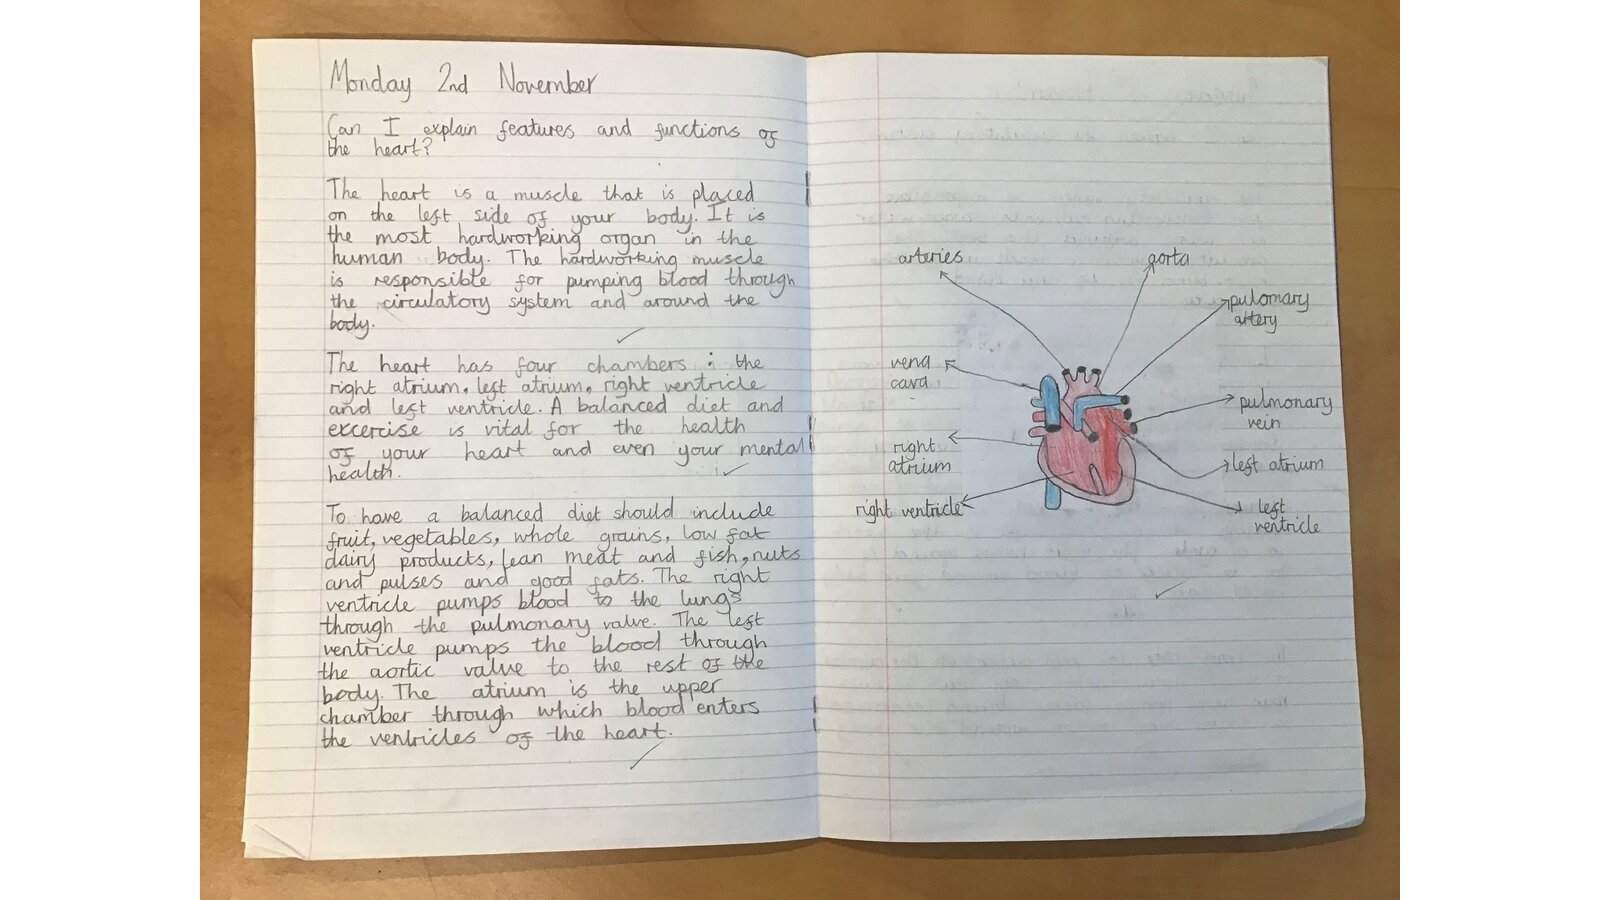 Monday 2nd November
Can I explain features and functions of
the heart?
The heart is a muscle that is placed
on the left side of your body. It is
the most hardworking organ in the
human body. The hardworking muscle
is responsible for pumping blood through
the circulatory system and around the
body.
The heart has four chambers : the
right atrium, left atrium, right ventricle
and left ventricle. A balanced diet and
excercise is vital for the health
of your heart and even your mental
health.
To have a balanced diet should include
fruit, vegetables, whole grains, low fat
dairy products, lean meat and fish, nuts
and pulses and good fats. The right
ventricle pumps blood to the lungs
through the pulmonary valve. The left
ventricle pumps the blood through
the aortic valve to the rest of the
body. The atrium is the upper
chamber through which blood enters
the ventricles of the heart.
arteries
aorta
pulomary
artery
vena
cava
pulmonary
vein
right
atrium
left atrium
right ventricle
left
ventricle